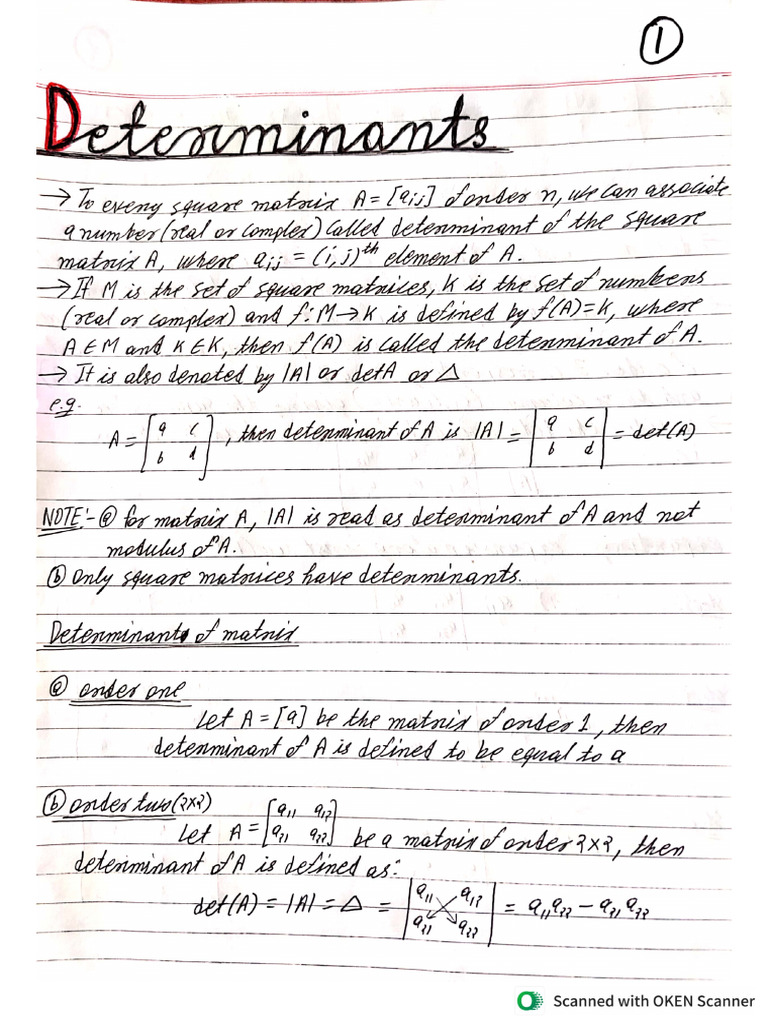 1
Determinants
→ To every square matrix A = [aij] of order n, we can associate
a number (real or complex) called determinant of the square
matrix A, where aij = (i,j)th element of A.
→ If M is the set of square matrices, K is the set of numbers
(real or complex) and f: M → K is defined by f(A) = K, where
A ∈ M and K ∈ K, then f(A) is called the determinant of A.
→ It is also denoted by |A| or detA or △
e.g.
A = [a c; b d], then determinant of A is |A| = |a c; b d| = det(A)
NOTE:- (a) for matrix A, |A| is read as determinant of A and not
modulus of A.
(b) Only square matrices have determinants.
Determinant of matrix
(a) order one
Let A = [a] be the matrix of order 1, then
determinant of A is defined to be equal to a
(b) order two (2×2)
Let A = [a11 a12; a21 a22] be a matrix of order 2×2, then
determinant of A is defined as:
det(A) = |A| = △ = |a11 a12; a21 a22| = a11a22 - a21a22
Scanned with OKEN Scanner